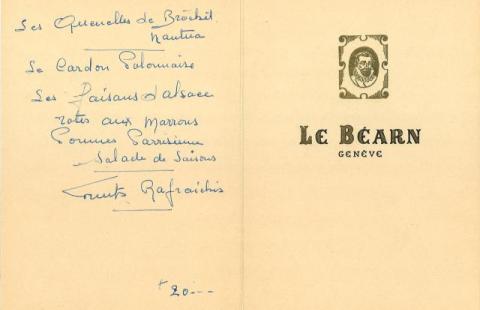 Les Quenelles de Bròchet
Nantua
Le Cardon Polonnaise
Les faisans d'alsace
rotis aux Marrons
Pommes Parrisienne
Salade de Saisons
Fruits Rafraichis
20---
LE BÉARN
GENÈVE